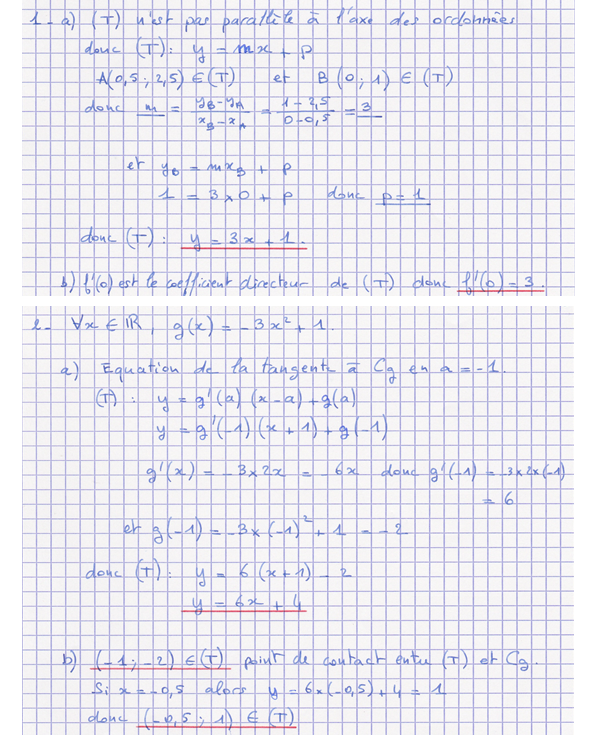 1- a) (T) n'est pas parallèle à l'axe des ordonnées
donc (T): y = mx + p
A(0,5 ; 2,5) ∈ (T) et B (0 ; 1) ∈ (T)
donc m = (yB - yA)/(xB - xA) = (1 - 2,5)/(0 - 0,5) = 3
et yB = mxB + p
1 = 3 × 0 + p donc p = 1
donc (T) : y = 3x + 1.
b) f'(0) est le coefficient directeur de (T) donc f'(0) = 3.
2- ∀x ∈ ℝ, g(x) = -3x² + 1.
a) Equation de la tangente à Cg en a = -1.
(T) : y = g'(a) (x-a) + g(a)
y = g'(-1) (x+1) + g(-1)
g'(x) = -3×2x = -6x donc g'(-1) = -3×2×(-1)
= 6
et g(-1) = -3×(-1)² + 1 = -2
donc (T): y = 6 (x+1) - 2
y = 6x + 4
b) (-1 ; -2) ∈ (T) point de contact entre (T) et Cg.
Si x = -0,5 alors y = 6×(-0,5) + 4 = 1
donc (-0,5 ; 1) ∈ (T)